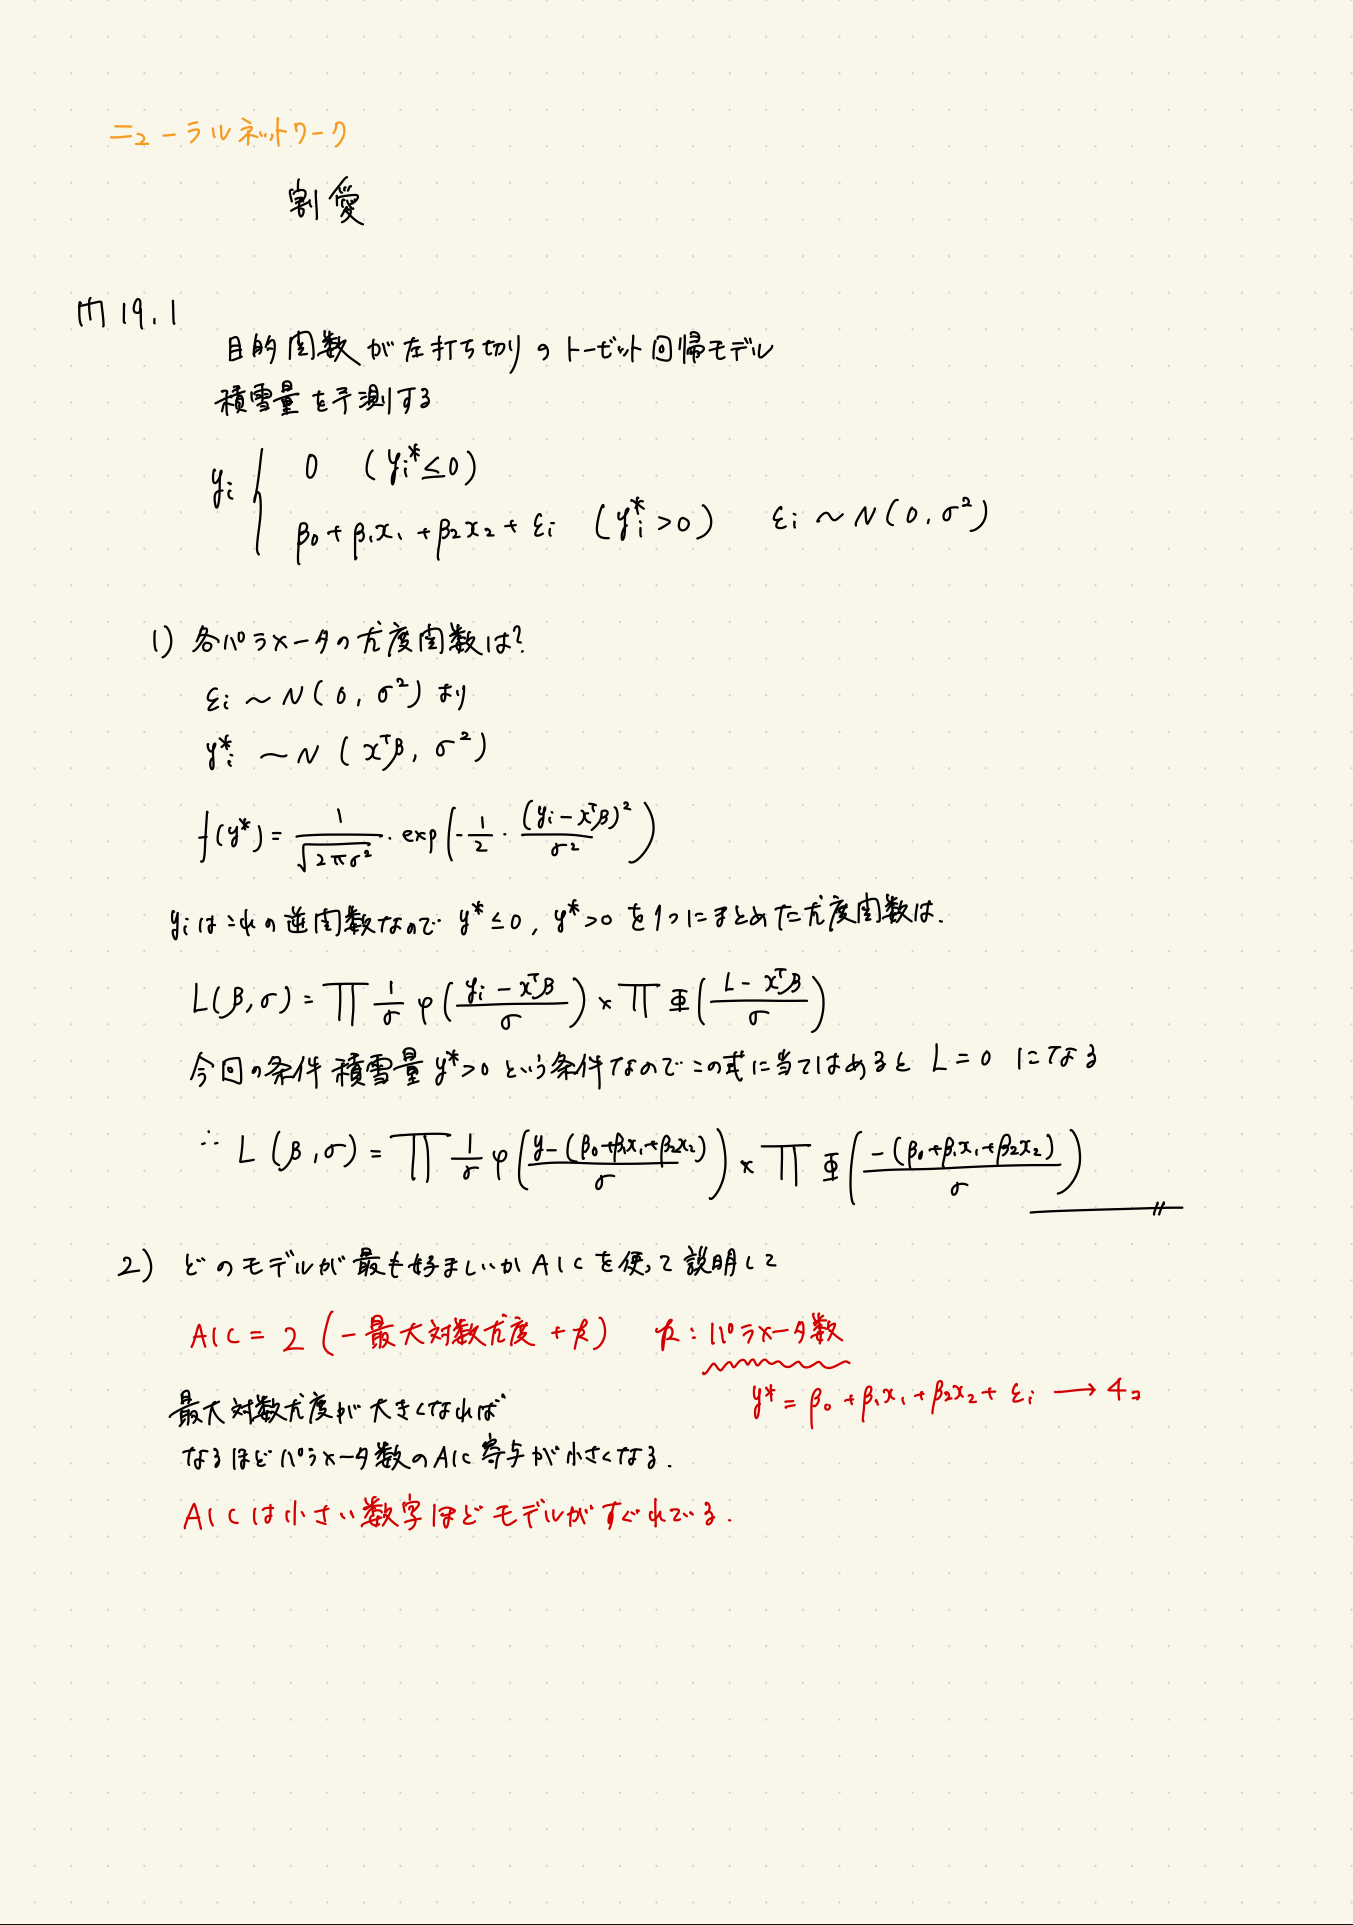 ニューラルネットワーク
割愛
問19.1
目的関数が左打ち切りのトービット回帰モデル
積雪量を予測する
yi { 0 (yi*≤0)
β0+β1x1+β2x2+εi (yi*>0) εi~N(0,σ²)
1) 各パラメータの尤度関数は?
εi~N(0,σ²)より
yi*~N(xᵀβ,σ²)
f(y*)= 1/√(2πσ²)・exp(-1/2・(yi-xᵀβ)²/σ²)
yiはこれの逆関数なので y*≤0, y*>0を1つにまとめた尤度関数は.
L(β,σ)=∏ 1/σ φ((yi-xᵀβ)/σ)×∏Φ((L-xᵀβ)/σ)
今回の条件 積雪量 y*>0 という条件なのでこの式に当てはめると L=0 になる
∴ L(β,σ)=∏ 1/σ φ((y-(β0+β1x1+β2x2))/σ)×∏Φ((-(β0+β1x1+β2x2))/σ)
2) どのモデルが最も好ましいかAICを使って説明して
AIC=2(-最大対数尤度+k) k:パラメータ数
y*=β0+β1x1+β2x2+εi→4コ
最大対数尤度が大きくなれば
なるほどパラメータ数のAIC寄与が小さくなる.
AICは小さい数字ほどモデルがすぐれている.